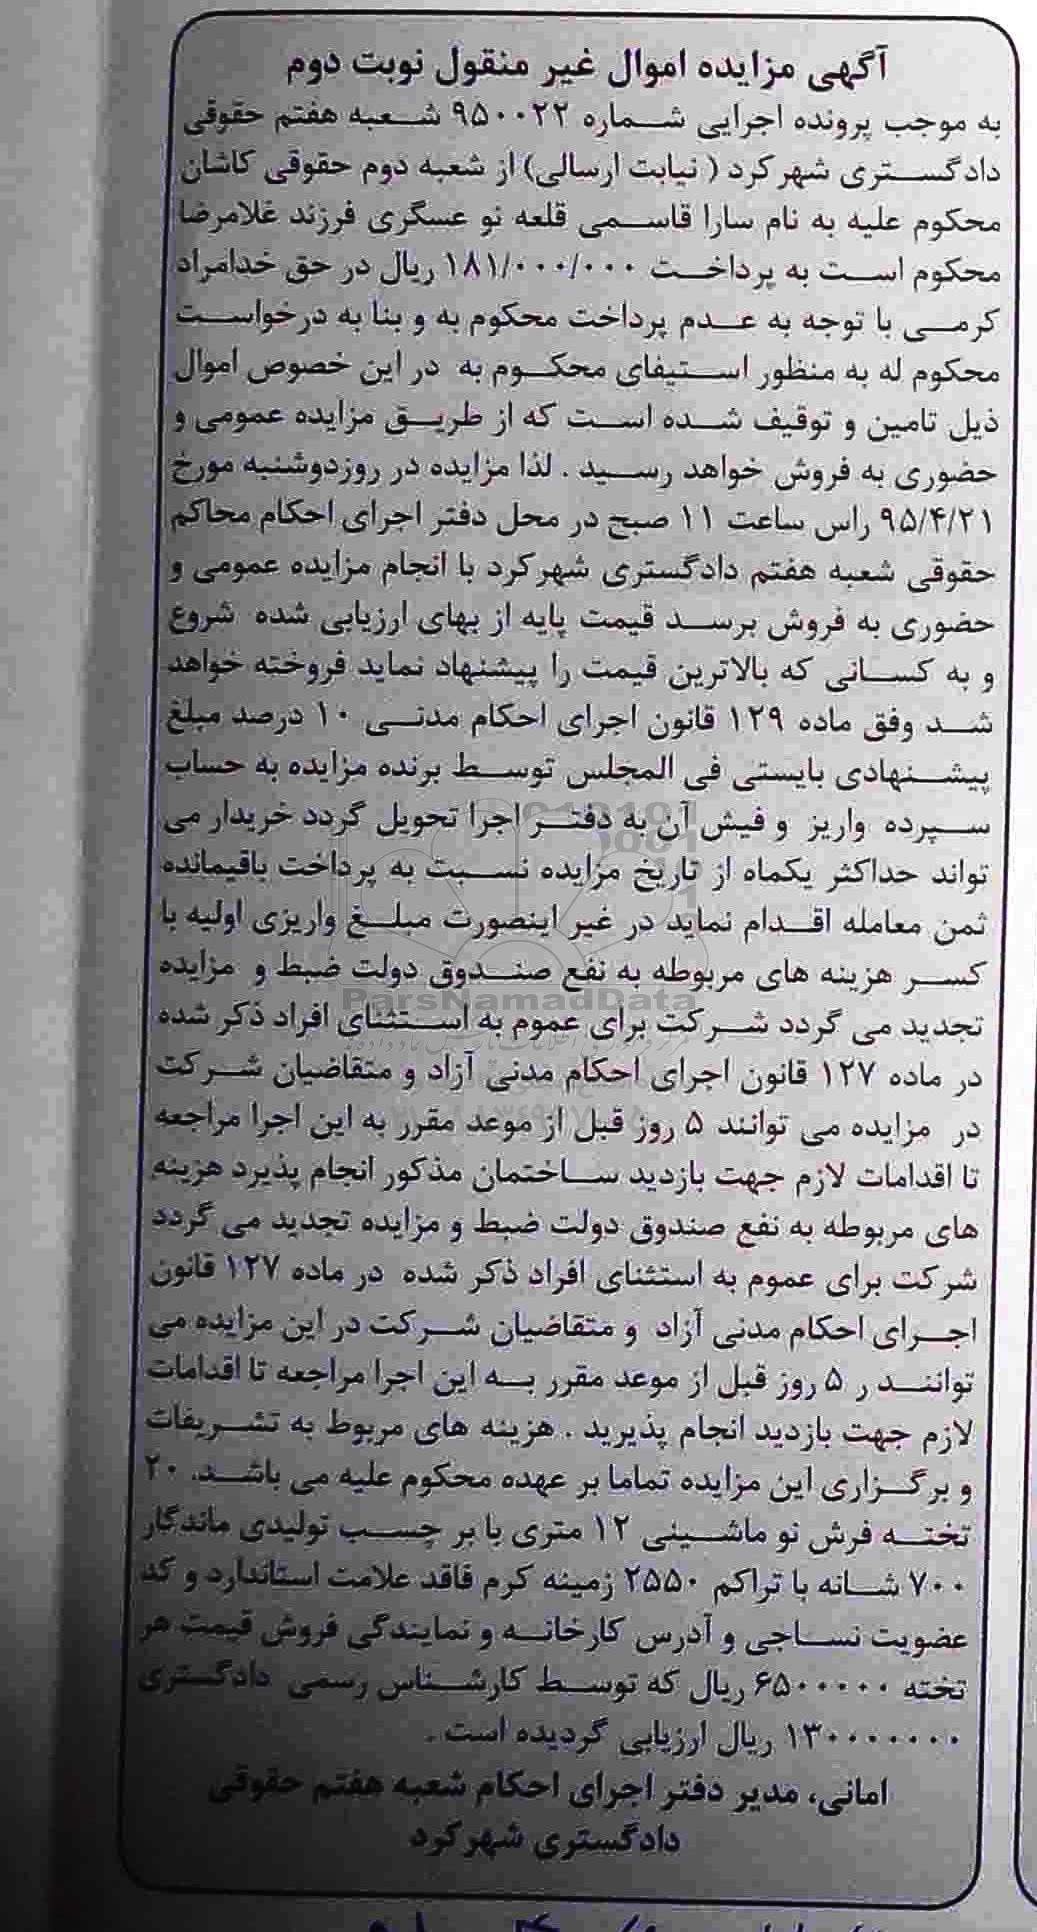 آگهی مزایده اموال غیر منقول نوبت دوم
به موجب پرونده اجرایی شماره ۹۵۰۰۲۲ شعبه هفتم حقوقی
دادگستری شهرکرد ( نیابت ارسالی) از شعبه دوم حقوقی کاشان
محکوم علیه به نام سارا قاسمی قلعه نو عسگری فرزند غلامرضا
محکوم است به پرداخت ۱۸۱/۰۰۰/۰۰۰ ریال در حق خدامراد
کرمی با توجه به عدم پرداخت محکوم به و بنا به درخواست
محکوم له به منظور استیفای محکوم به در این خصوص اموال
ذیل تامین و توقیف شده است که از طریق مزایده عمومی و
حضوری به فروش خواهد رسید . لذا مزایده در روزدوشنبه مورخ
۹۵/۴/۲۱ راس ساعت ۱۱ صبح در محل دفتر اجرای احکام محاکم
حقوقی شعبه هفتم دادگستری شهرکرد با انجام مزایده عمومی و
حضوری به فروش برسد قیمت پایه از بهای ارزیابی شده شروع
و به کسانی که بالاترین قیمت را پیشنهاد نماید فروخته خواهد
شد وفق ماده ۱۲۹ قانون اجرای احکام مدنی ۱۰ درصد مبلغ
پیشنهادی بایستی فی المجلس توسط برنده مزایده به حساب
سپرده واریز و فیش آن به دفتر اجرا تحویل گردد خریدار می
تواند حداکثر یکماه از تاریخ مزایده نسبت به پرداخت باقیمانده
ثمن معامله اقدام نماید در غیر اینصورت مبلغ واریزی اولیه با
کسر هزینه های مربوطه به نفع صندوق دولت ضبط و مزایده
ParsNamadData
تجدید می گردد شرکت برای عموم به استثنای افراد ذکر شده
در ماده ۱۲۷ قانون اجرای احکام مدنی آزاد و متقاضیان شرکت
در مزایده می توانند ۵ روز قبل از موعد مقرر به این اجرا مراجعه
تا اقدامات لازم جهت بازدید ساختمان مذکور انجام پذیرد هزینه
های مربوطه به نفع صندوق دولت ضبط و مزایده تجدید می گردد
شرکت برای عموم به استثنای افراد ذکر شده در ماده ۱۲۷ قانون
اجرای احکام مدنی آزاد و متقاضیان شرکت در این مزایده می
توانند ر ۵ روز قبل از موعد مقرر به این اجرا مراجعه تا اقدامات
لازم جهت بازدید انجام پذیرید . هزینه های مربوط به تشریفات
و برگزاری این مزایده تماما بر عهده محکوم علیه می باشد. ۲۰
تخته فرش نو ماشینی ۱۲ متری با بر چسب تولیدی ماندگار
۷۰۰ شانه با تراکم ۲۵۵۰ زمینه کرم فاقد علامت استاندارد و کد
عضویت نساجی و آدرس کارخانه و نمایندگی فروش قیمت هر
تخته ۶۵۰۰۰۰۰ ریال که توسط کارشناس رسمی دادگستری
۱۳۰۰۰۰۰۰۰ ریال ارزیابی گردیده است .
امانی، مدیر دفتر اجرای احکام شعبه هفتم حقوقی
دادگستری شهرکرد